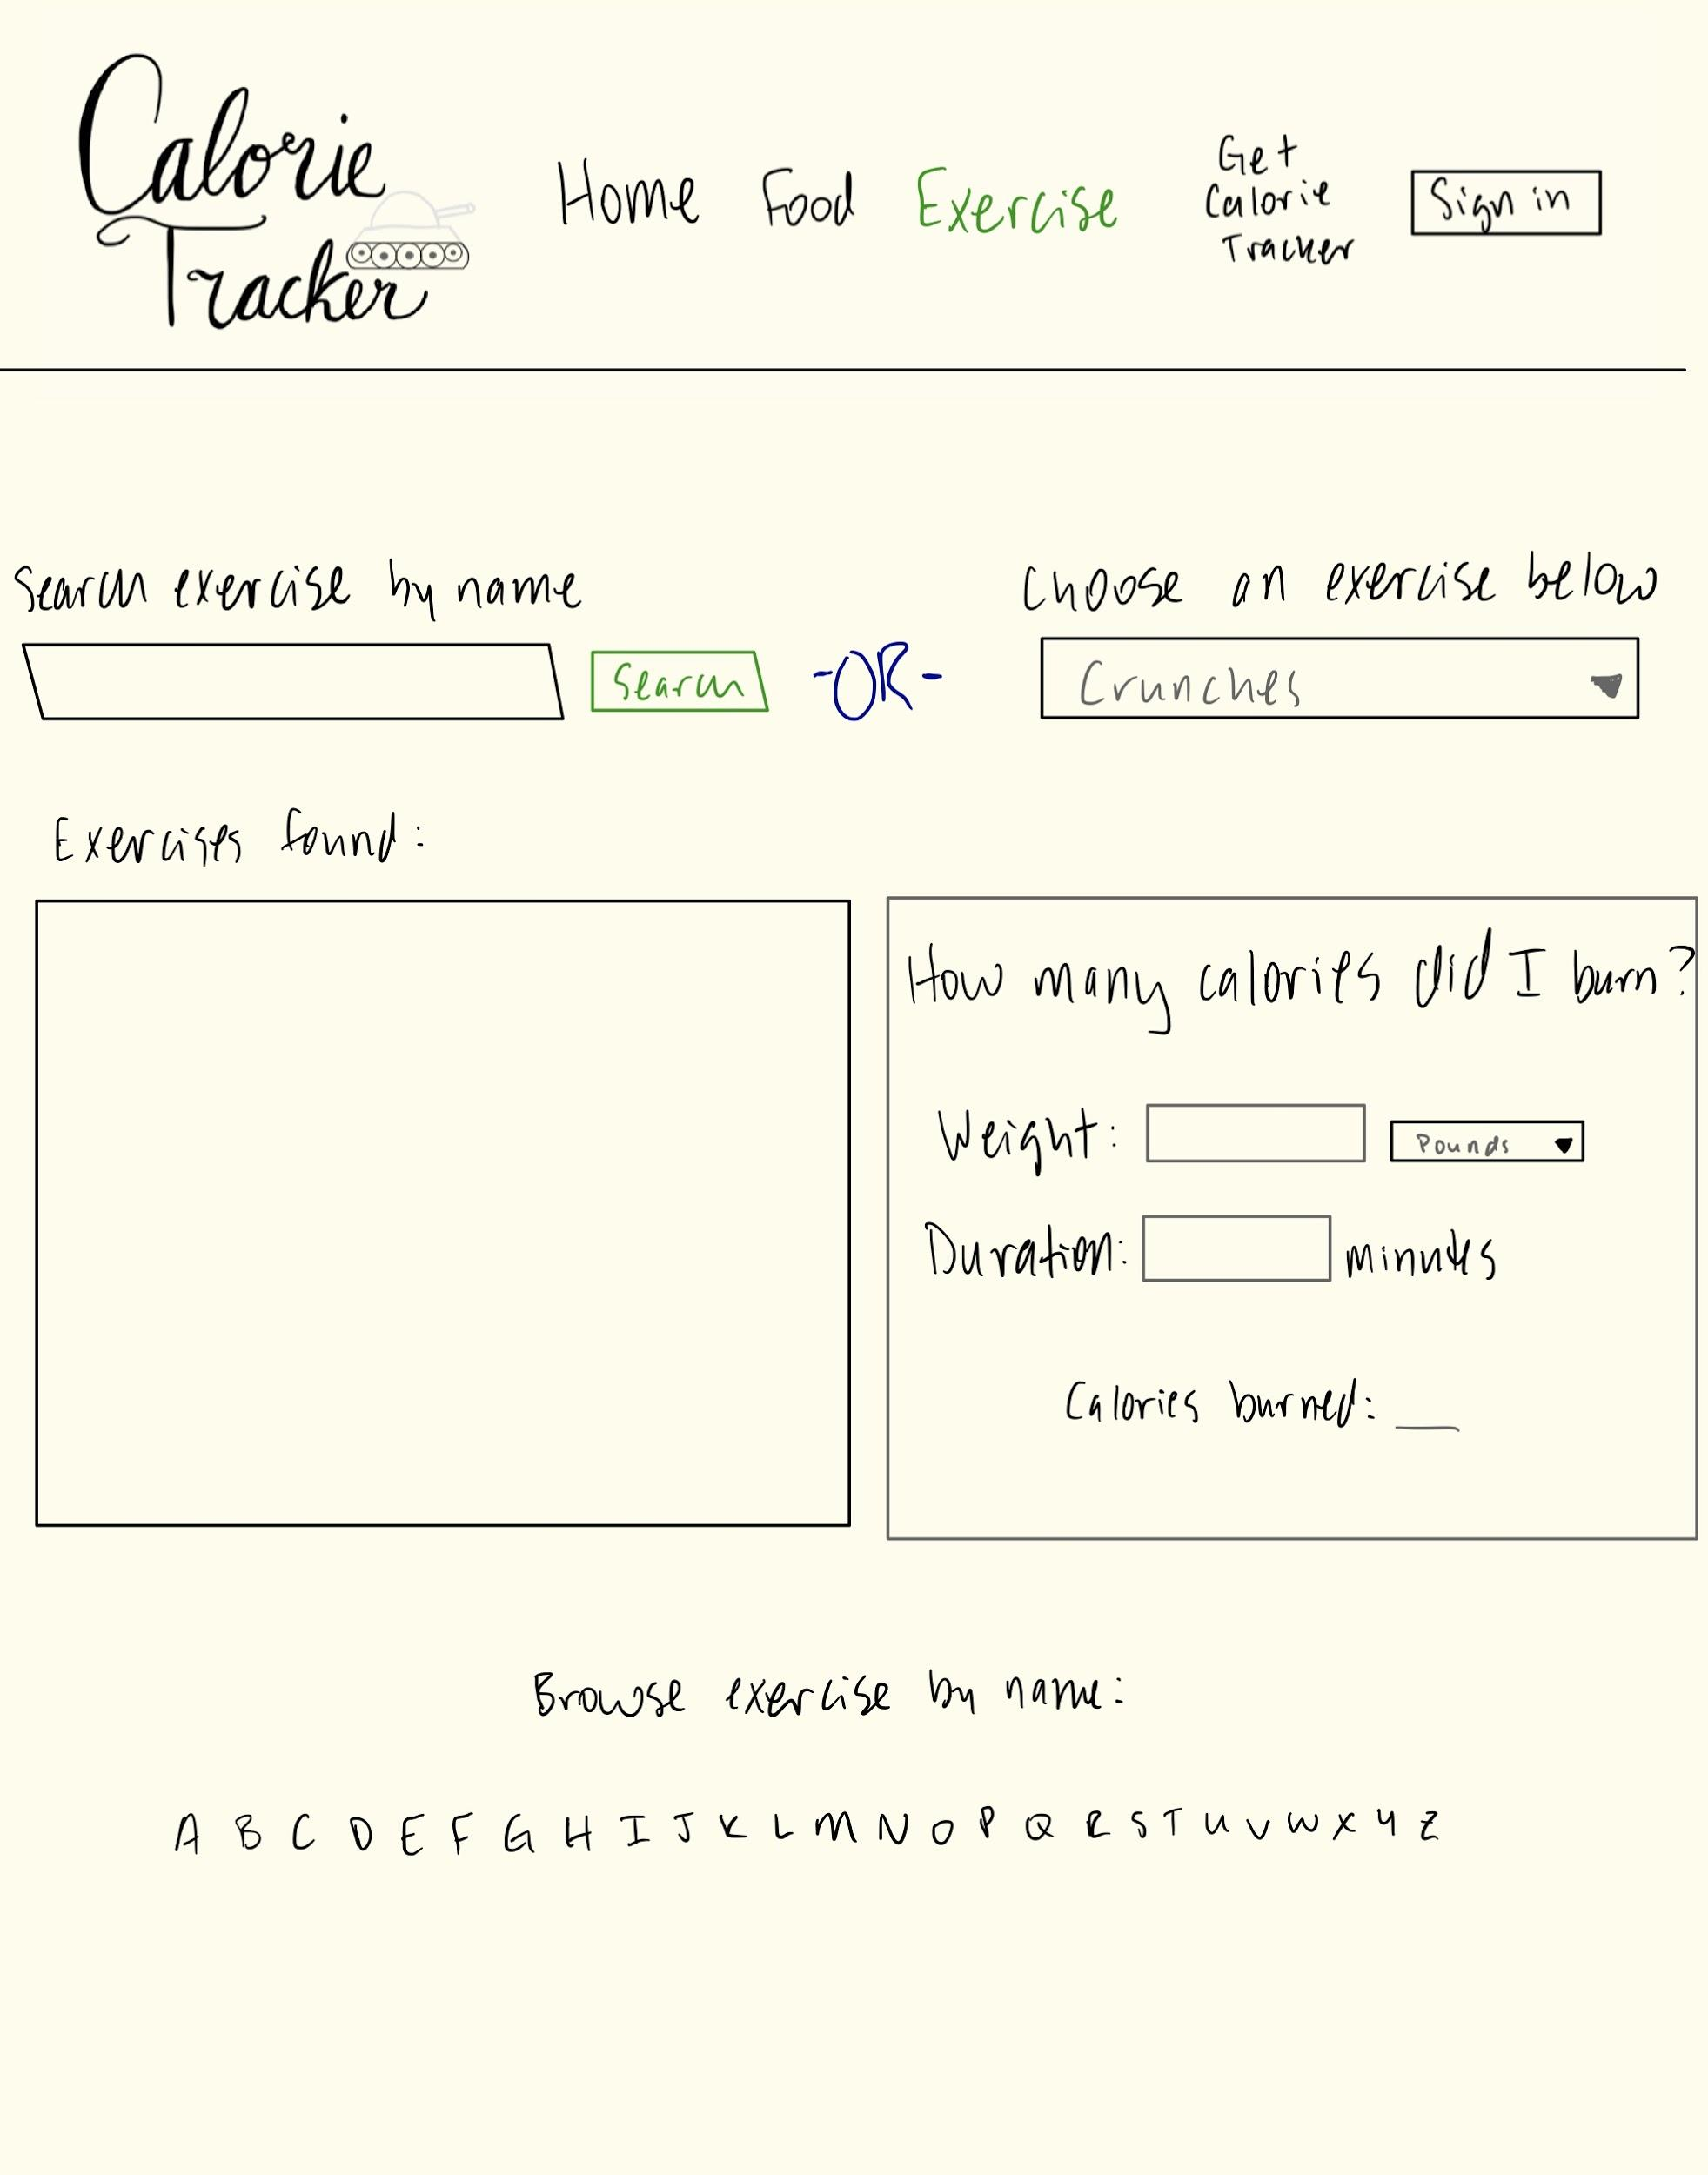 Calorie
Tracker
Home Food Exercise
Get
Calorie
Tracker
Sign in
Search exercise by name
Choose an exercise below
Search
-OR-
Crunches
Exercises found:
How many calories did I burn?
Weight:
Pounds
Duration: minutes
Calories burned: ___
Browse exercise by name:
A B C D E F G H I J K L M N O P Q R S T U V W X Y Z